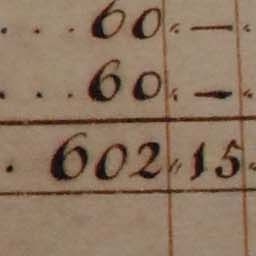 . . . 60 . — .
. . . 60 . — .
. 602 . 15 .